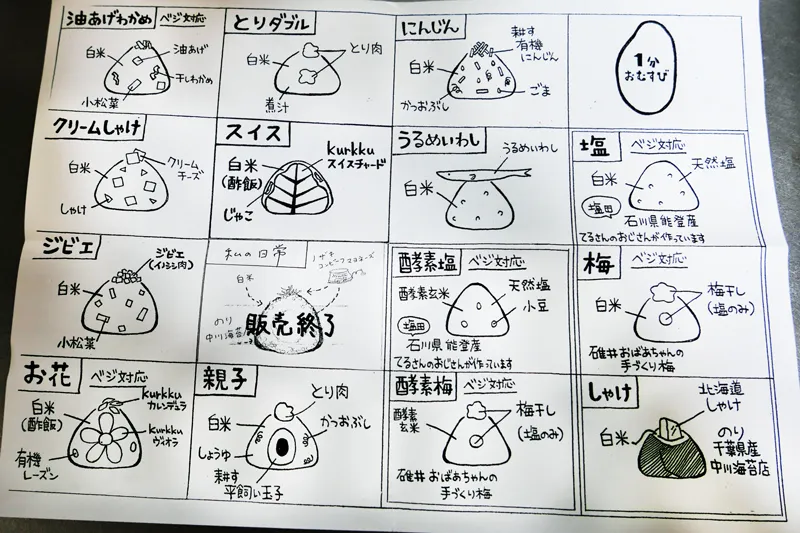 油あげわかめ ベジ対応
白米
油あげ
干しわかめ
小松菜
とりダブル
とり肉
白米
煮汁
にんじん
耕す
有機
にんじん
白米
ごま
かつおぶし
1分
おむすび
クリームしゃけ
白米
クリーム
チーズ
しゃけ
スイス
白米
(酢飯)
kurkku
スイスチャード
じゃこ
うるめいわし
うるめいわし
白米
塩 ベジ対応
天然塩
白米
塩田
石川県能登産
てるさんのおじさんが作っています
ジビエ
ジビエ
(イノシシ肉)
白米
小松菜
私の日常
白米
のり
中川海苔店
販売終了
酵素塩 ベジ対応
酵素玄米
天然塩
小豆
塩田
石川県能登産
てるさんのおじさんが作っています
梅 ベジ対応
白米
梅干し
(塩のみ)
碓井おばあちゃんの
手づくり梅
お花 ベジ対応
白米
(酢飯)
kurkku
カレンデュラ
kurkku
ヴィオラ
有機
レーズン
親子
とり肉
白米
かつおぶし
しょうゆ
耕す
平飼い玉子
酵素梅 ベジ対応
酵素
玄米
梅干し
(塩のみ)
碓井おばあちゃんの
手づくり梅
しゃけ
北海道
しゃけ
白米
のり
千葉県産
中川海苔店